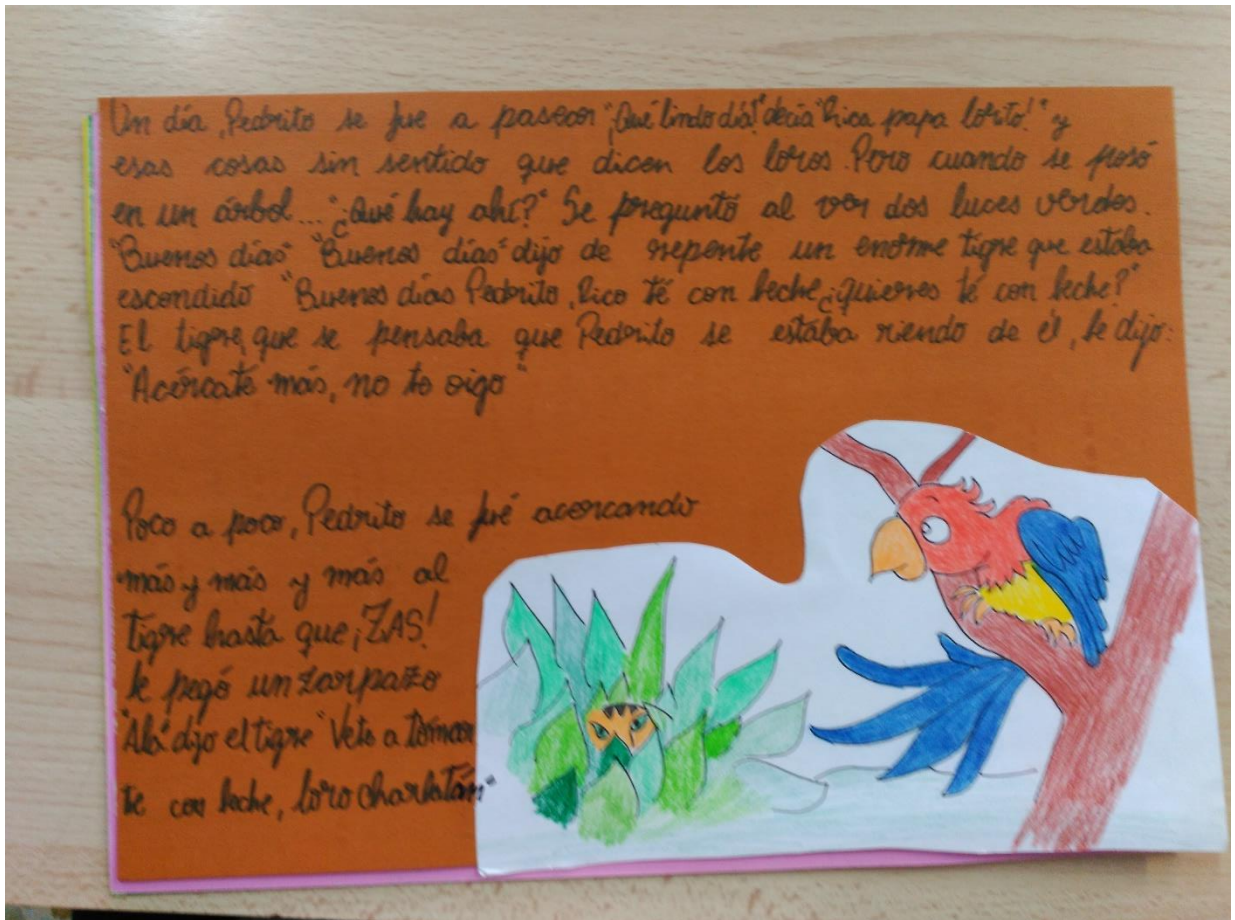 Un día, Pedrito se fue a pasear "¡Qué lindo día!" decía "Rica papa lorito!" y
esas cosas sin sentido que dicen los loros. Pero cuando se posó
en un árbol... "¿Qué hay ahí?" Se preguntó al ver dos luces verdes.
"Buenos días" "Buenos días" dijo de repente un enorme tigre que estaba
escondido "Buenos días Pedrito, Rico té con leche ¿quieres té con leche?"
El tigre, que se pensaba que Pedrito se estaba riendo de él, le dijo:
"Acércate más, no te oigo"
Poco a poco, Pedrito se fué acercando
más y más y más al
tigre hasta que ¡ZAS!
le pegó un zarpazo
"Alá" dijo el tigre "Vete a tomar
te con leche, loro charlatán"